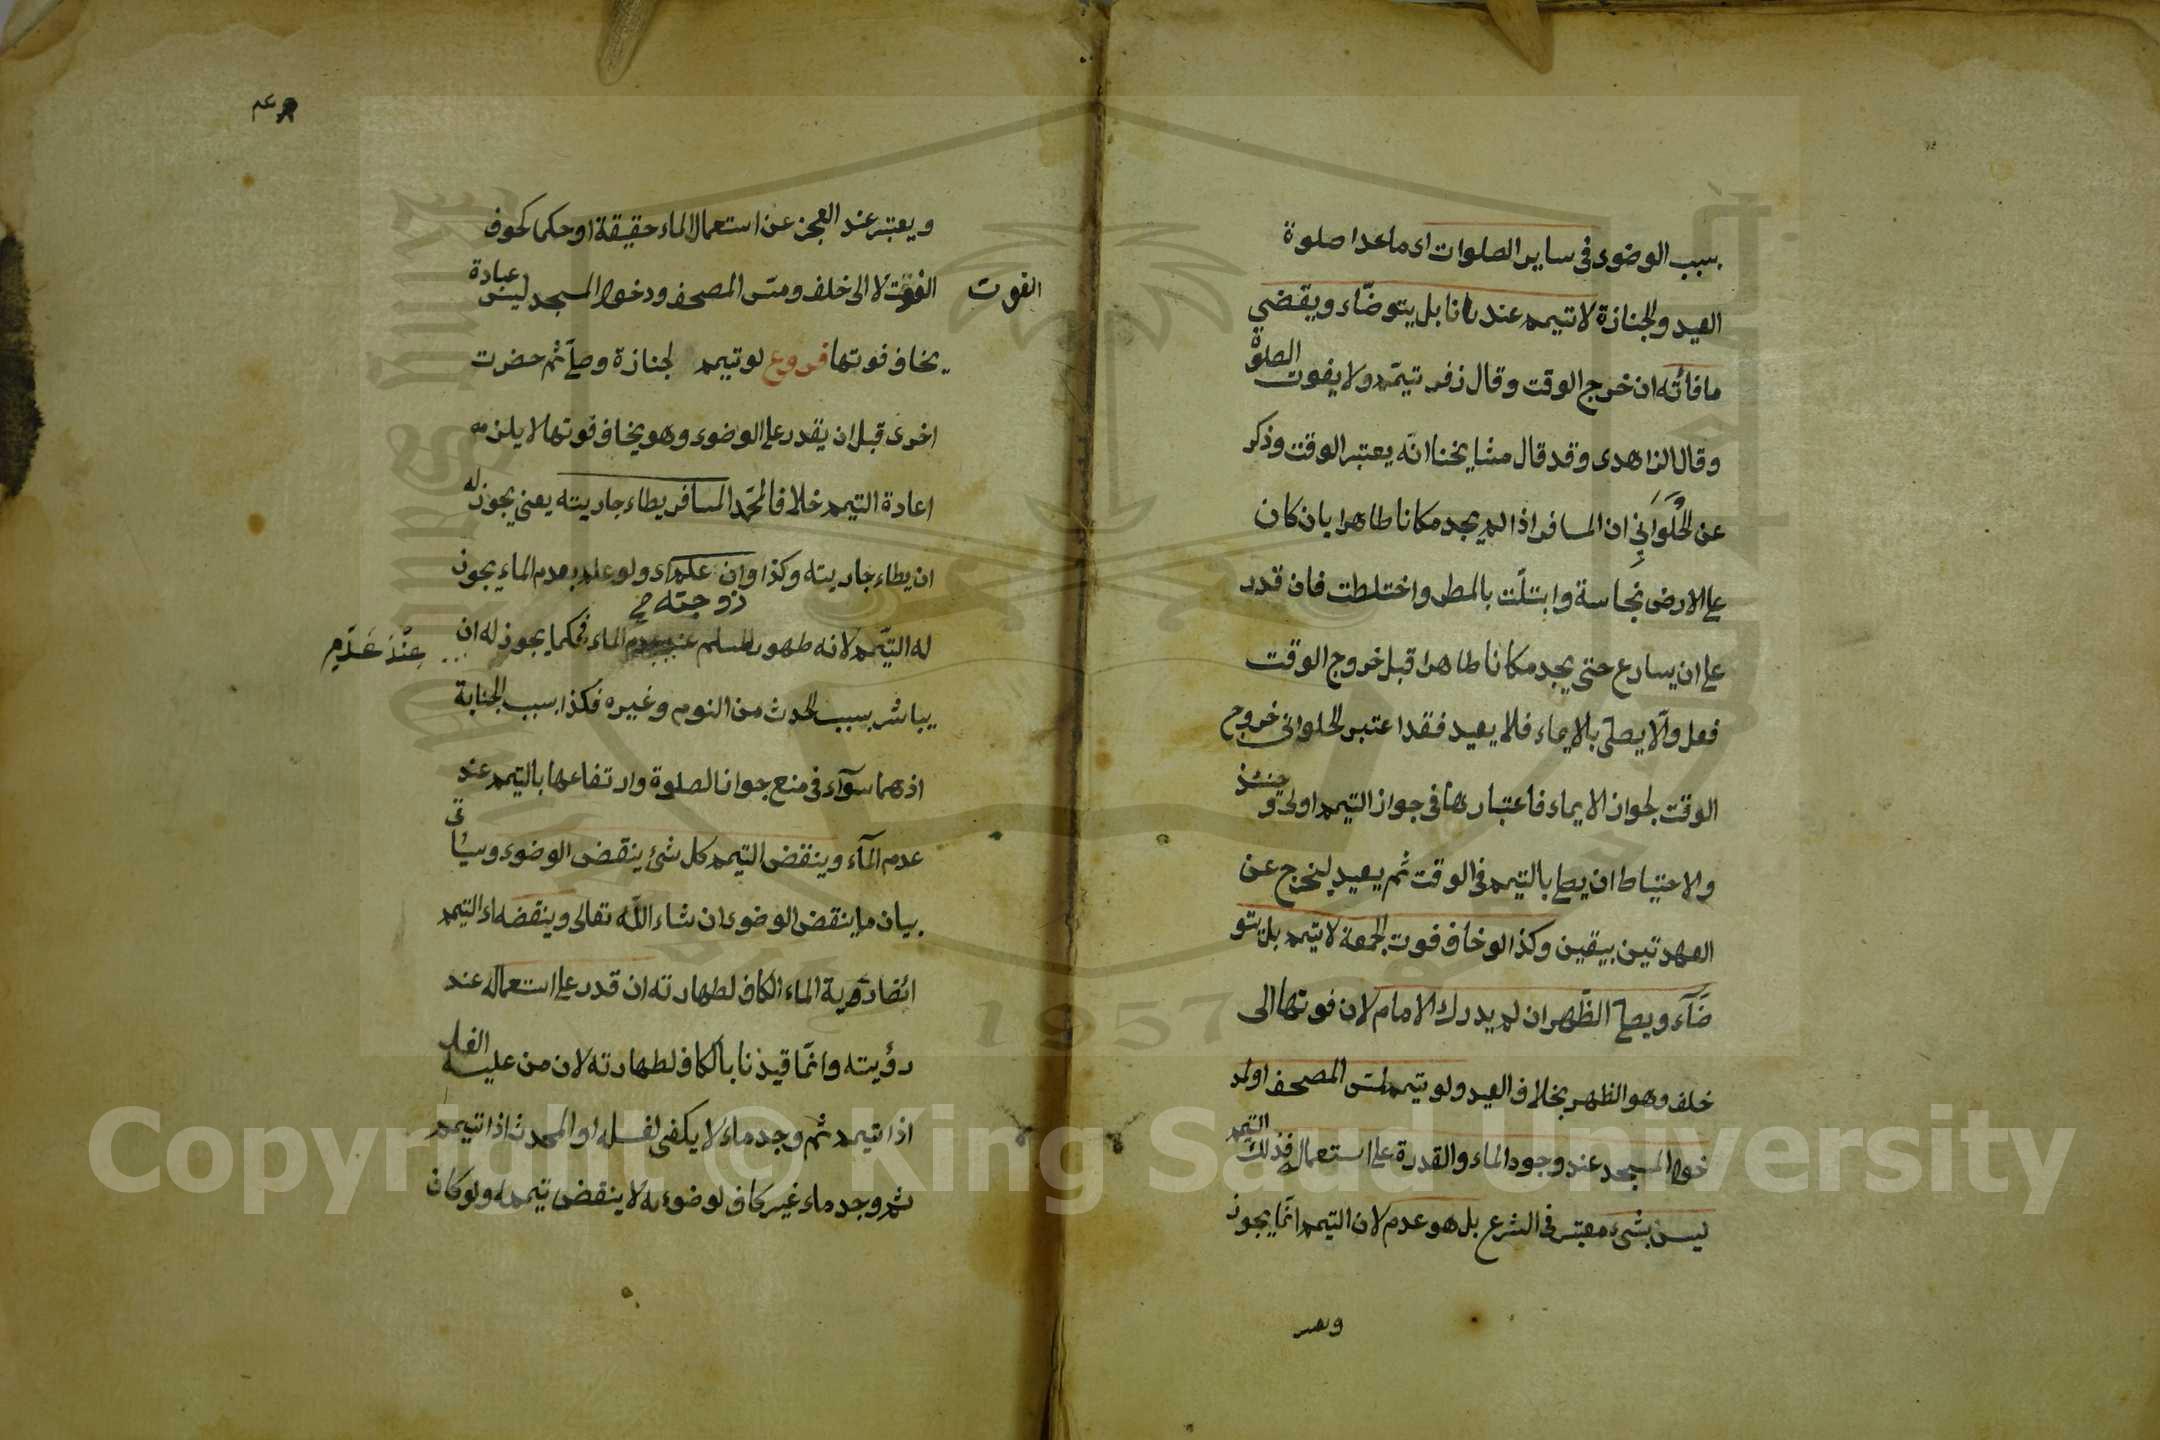 بسبب الوضوء في ساير الصلوات اى ماعدا صلوة
العيد والجنازة لا تيمم عندنا بل يتوضّاء ويقضي
ما فاتُه ان خرج الوقت وقال زفر تيمّم ولا يفوت الصلوة
وقال الزاهدى وقد قال مشايخنا انّه يعتبر الوقت وذكر
عن الحُلْوَانِي ان المسافر اذا لم يجد مكانا طاهرا بان كان
على الارض نجاسة وابتلّت بالمطر واختلطت فان قدر
على ان يسارع حتى يجد مكانا طاهرا قبل خروج الوقت
فعل والّا يصلّى بالايماء فلا يعيد فقد اعتبر الحلوانى خروج
الوقت لجواز الايماء فاعتبارها في جواز التيمم اولى و حينئذ
والاحتياط ان يصلى بالتيمم فى الوقت ثم يعيد ليخرج عن
العهدتين بيقين وكذا لو خاف فوت الجمعة لا تيمم بل يتو
ضّآء ويصلى الظّهر ان لم يدرك الامام لان فوتها الى
خلف وهو الظهر بخلاف العيد ولو تيمم لمسّ المصحف اولد
خول المسجد عند وجود الماء والقدرة على استعماله فذلك التيمم
ليس بشىء معتبر فى الشرع بل هو عدم لان التيمم انّما يجوز
ويعتبر
ويعتبر عند العجز عن استعمال الماء حقيقة او حكما كخوف
الفوت لا الى خلف ومسّ المصحف ودخول المسجد ليس عبادة
الفوت
يخاف فوتها فروع لو تيمم لجنازة وصلّى ثم حضرت
اخرى قبل ان يقدر على الوضوء وهو يخاف فوتها لا يلزمه
اعادة التيمم خلافا لمحمّد المسافر يطاء جاريته يعنى يجوز له
ان يطاء جاريته وكذا وان علم اى ولو علم بعدم الماء يجوز
زوجته صح
له التيّمم لانه طهور المسلم عند عدم الماء فكما يجوز له ان
عِنْدَ عَدَمِ
يباشر بسبب الحدث من النوم وغيره فكذا بسبب الجنابة
اذ هما سوآء فى منع جواز الصلوة وارتفاعها بالتيمم عند
عدم المآء وينقض التيمم كل شئ ينقض الوضوء وسيأتى
بيان ما ينقض الوضوء ان شاء اللّه تعالى وينقضه اى التيمم
ايضا رؤية الماء الكافى لطهارته ان قدر على استعماله عند
رؤيته وانّما قيدنا بالكافى لطهارته لان من عليه الغسل
اذا تيمم ثم وجد ماء لا يكفى لغسله او المحدث اذا تيمم
ثم وجد ماء غير كاف لوضوءه لا ينقض تيممه ولو كان
Copyright © King Saud University
1957